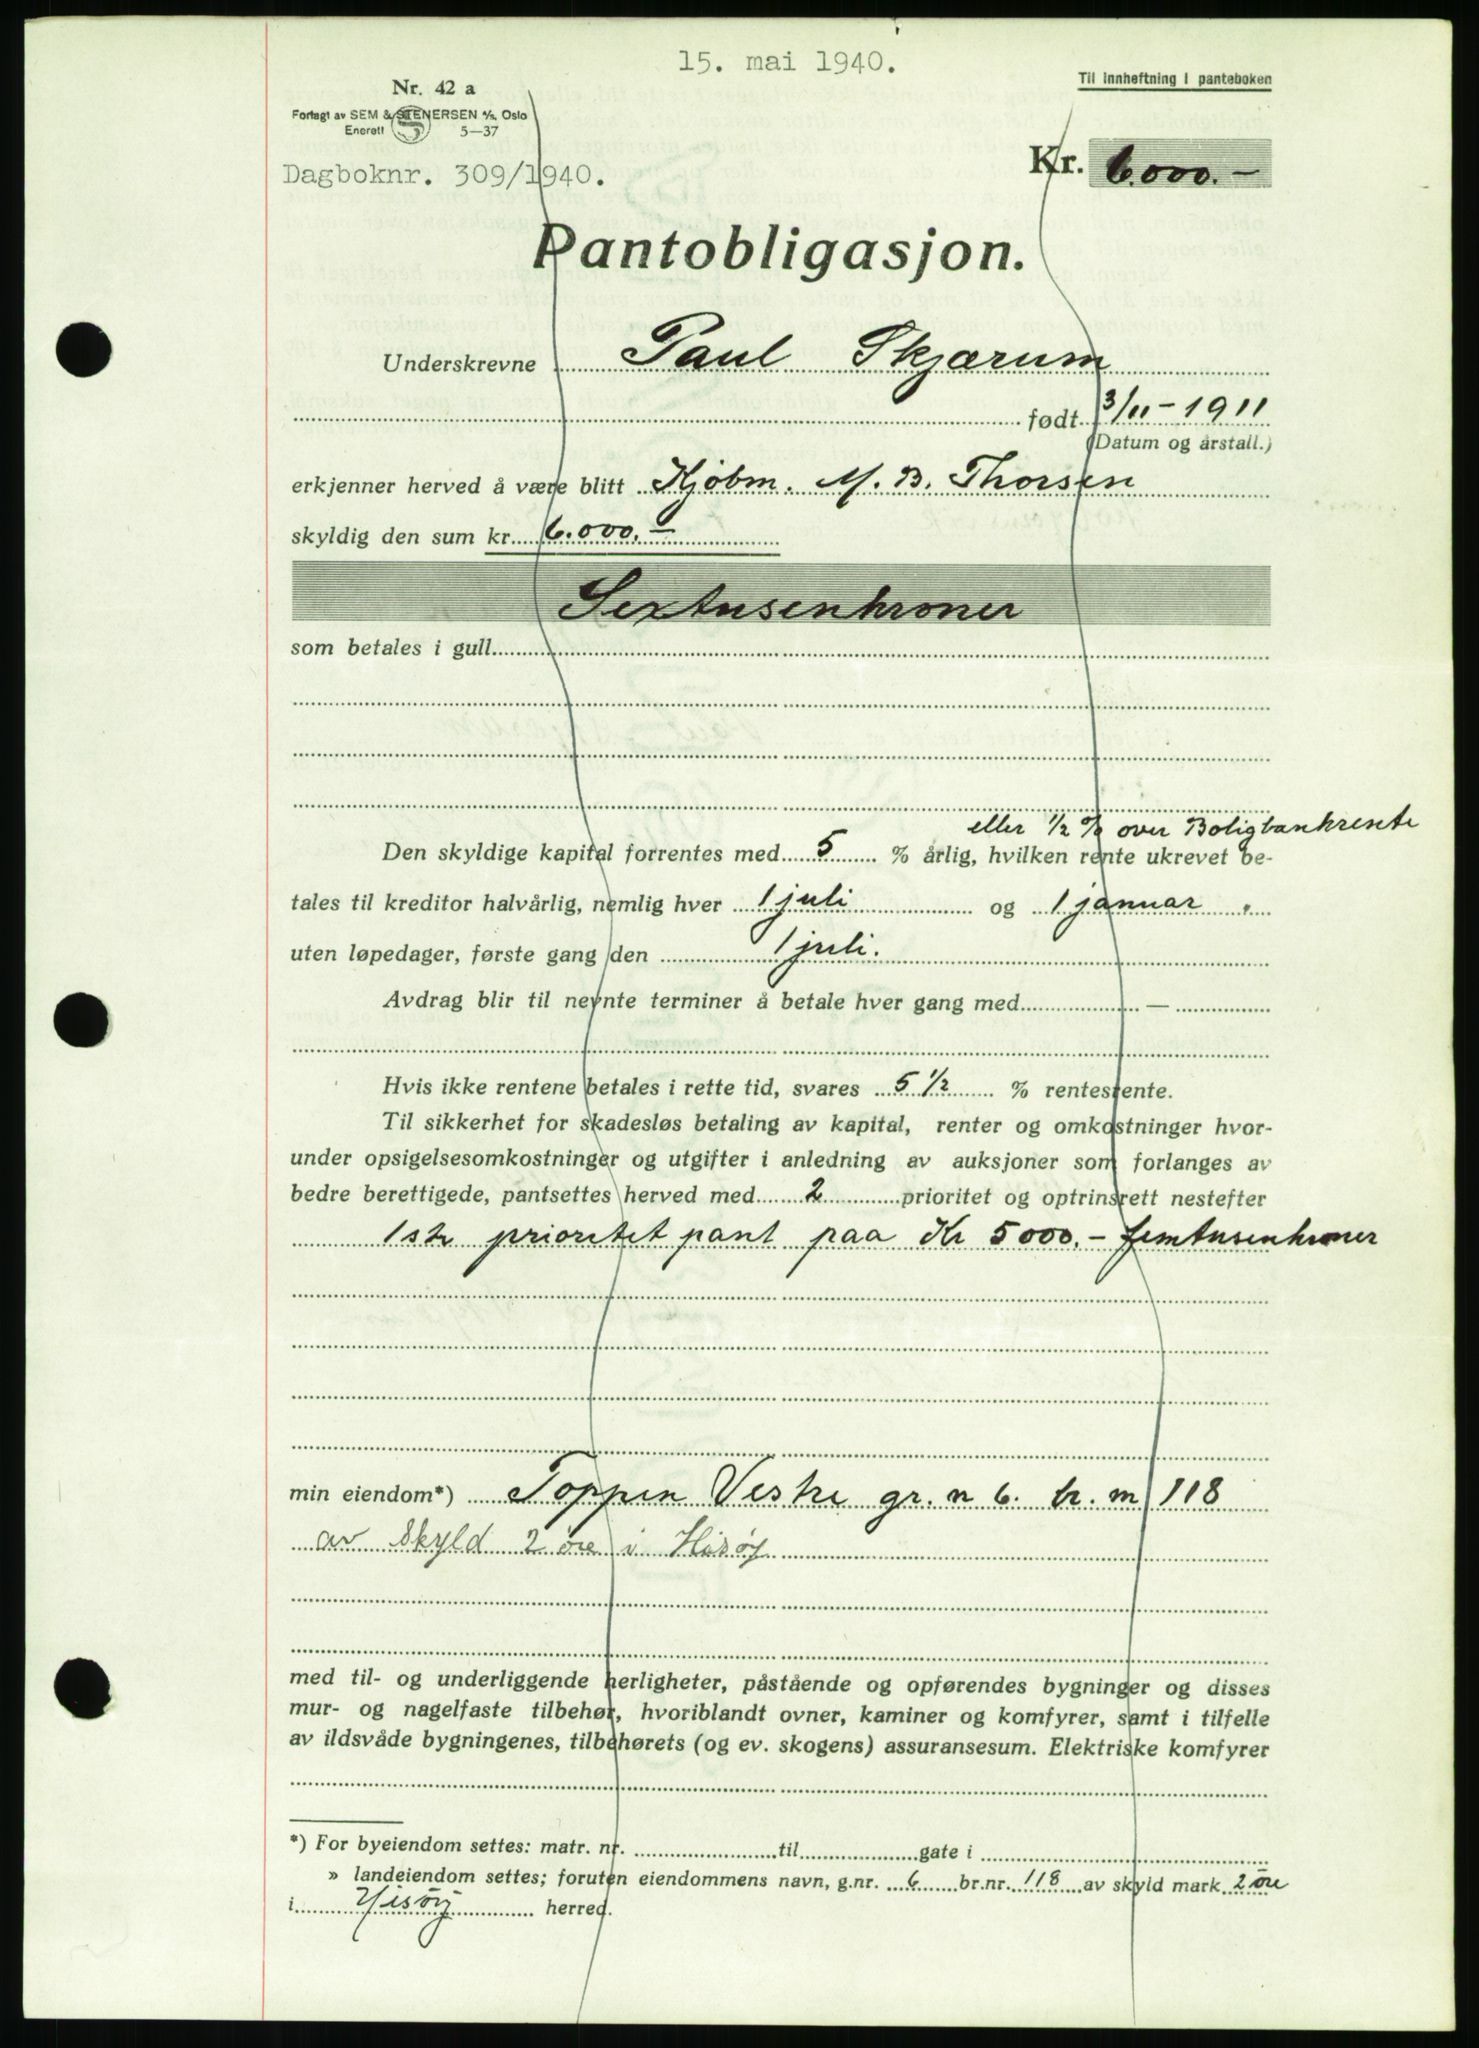 15. mai 1940.
Til innheftning i panteboken
Nr. 42 a
Forlagt av SEM & STENERSEN A/S, Oslo
Enerett 5—37
Kr. 6.000.-
Dagboknr. 309/1940.
Pantobligasjon.
Underskrevne Paul Skjærum
født 3/11-1911
(Datum og årstall.)
erkjenner herved å være blitt Kjøbm. M. B. Thorsen
skyldig den sum kr. 6.000.-
Sextusenkroner
som betales i gull
eller 1/2 % over Boligbankrente
Den skyldige kapital forrentes med 5 % årlig, hvilken rente ukrevet be-
tales til kreditor halvårlig, nemlig hver 1 juli og 1 januar.
uten løpedager, første gang den 1 juli.
Avdrag blir til nevnte terminer å betale hver gang med —
Hvis ikke rentene betales i rette tid, svares 5 1/2 % rentesrente.
Til sikkerhet for skadesløs betaling av kapital, renter og omkostninger hvor-
under opsigelsesomkostninger og utgifter i anledning av auksjoner som forlanges av
bedre berettigede, pantsettes herved med 2 prioritet og optrinsrett nestefter
1ste prioritet pant paa Kr 5000.- femtusenkroner
min eiendom*) Toppen Vestre gr. n 6. br. m 118
av Skyld 2 øre i Hisøy
med til- og underliggende herligheter, påstående og opførendes bygninger og disses
mur- og nagelfaste tilbehør, hvoriblandt ovner, kaminer og komfyrer, samt i tilfelle
av ildsvåde bygningenes, tilbehørets (og ev. skogens) assuransesum. Elektriske komfyrer
*) For byeiendom settes: matr. nr. til gate i
» landeiendom settes; foruten eiendommens navn, g.nr. 6 br.nr. 118 av skyld mark 2 øre
i Hisöy herred.